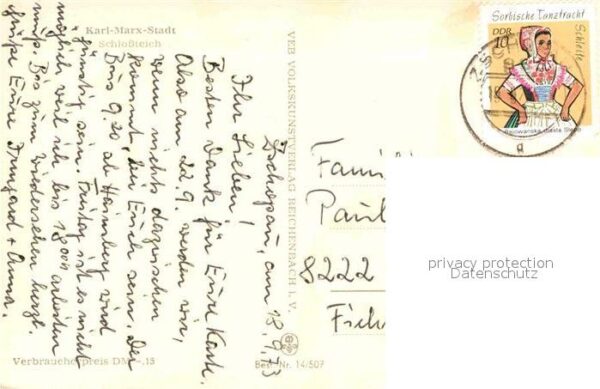 Karl-Marx-Stadt
Schloßteich
Zschopau, am 18.9.73
Ihr Lieben!
Besten Dank für Eure Karte.
Also am 22.9. werden wir,
wenn nichts dazwischen
kommt, bei Euch sein. Der
Bus 9.20 ab Hainsberg wird
günstig sein. Freitag ist es nicht
möglich weil ich bis 18 00h arbeiten
muß. Bis zum Wiedersehen herzl.
Grüße Eure Irmgard + Anna.
Verbraucherpreis DM -,15
VEB VOLKSKUNSTVERLAG REICHENBACH i. V.
Best.-Nr. 14/507
Sorbische Tanztracht
Schleife
DDR
10
Famil
Paul
8222
privacy protection
Datenschutz